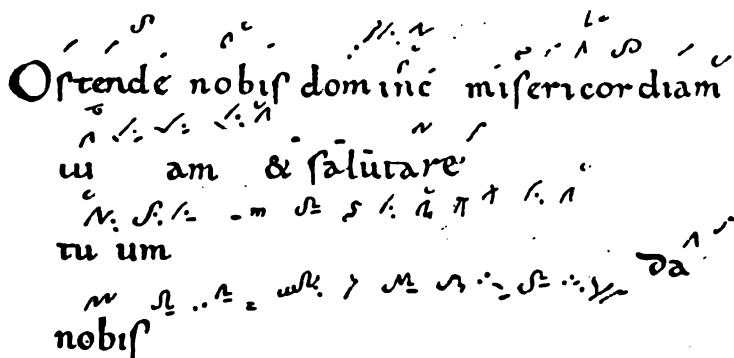 Oſtende nobiſ domine miſericordiam
tu am & ſalutare
tu um da
nobiſ